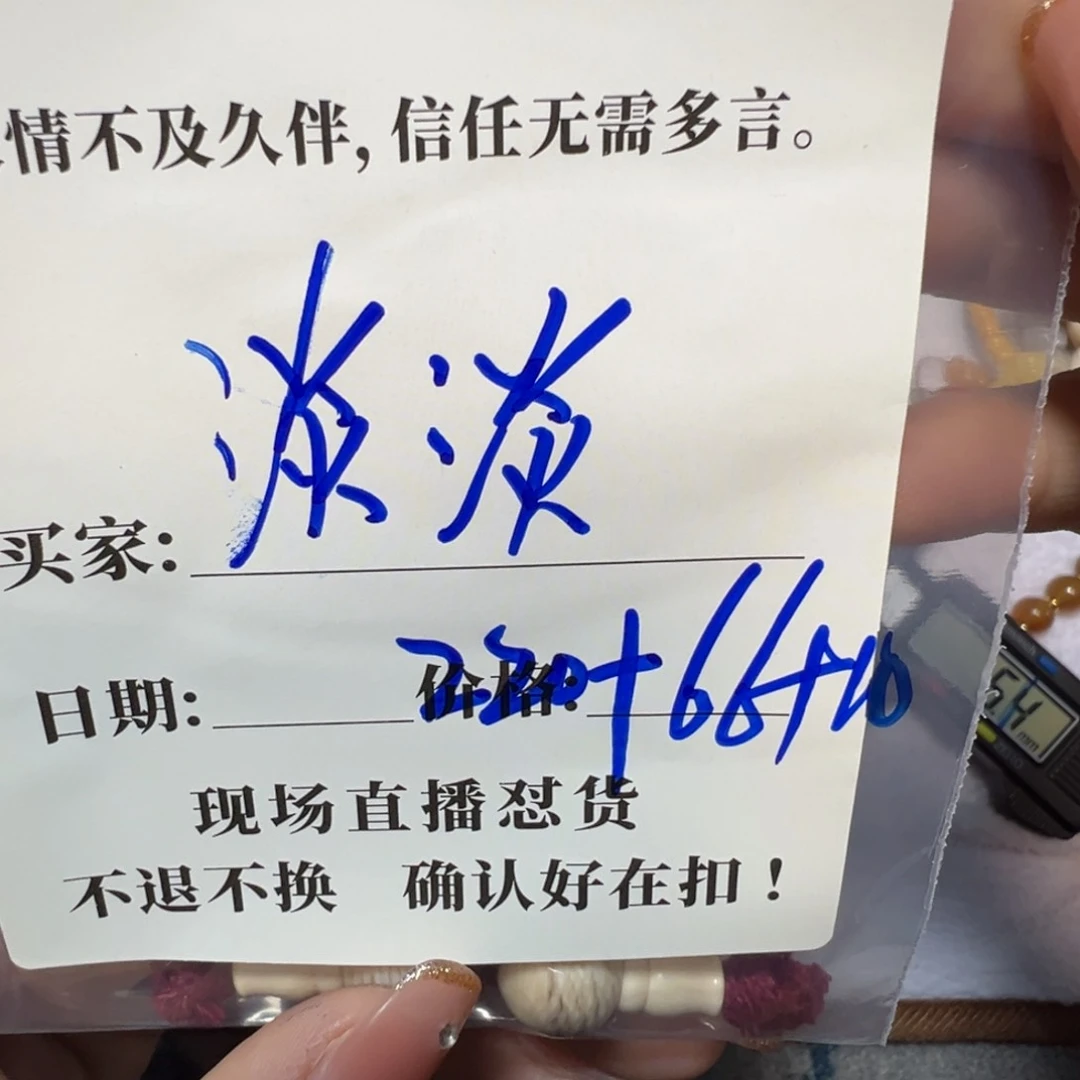 情不及久伴,信任无需多言。
买家: 淡淡
日期: 价格: 220+66+10
现场直播怼货
不退不换 确认好在扣!
mm